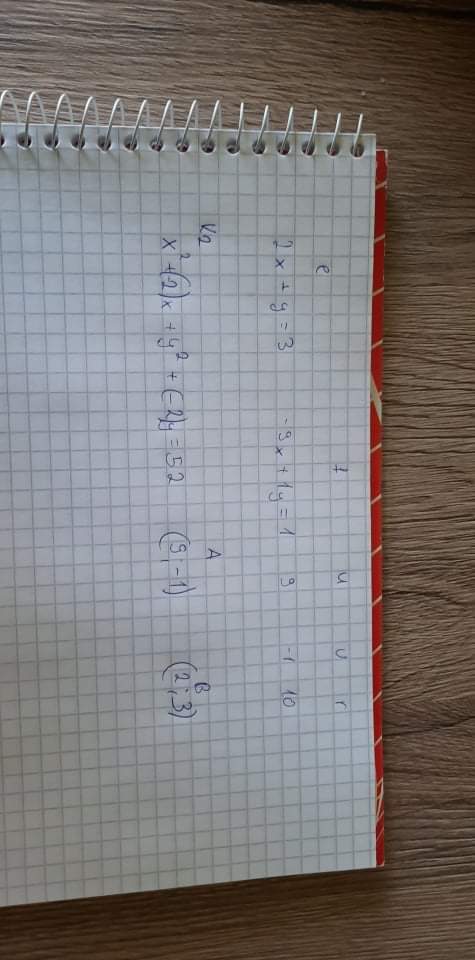 e t u v r
2x + y = 3 -9x + 1y = 1 9 -1 10
k2 A B
x² + (-2)x + y² + (-2)y = 52 (9; -1) (2; 3)